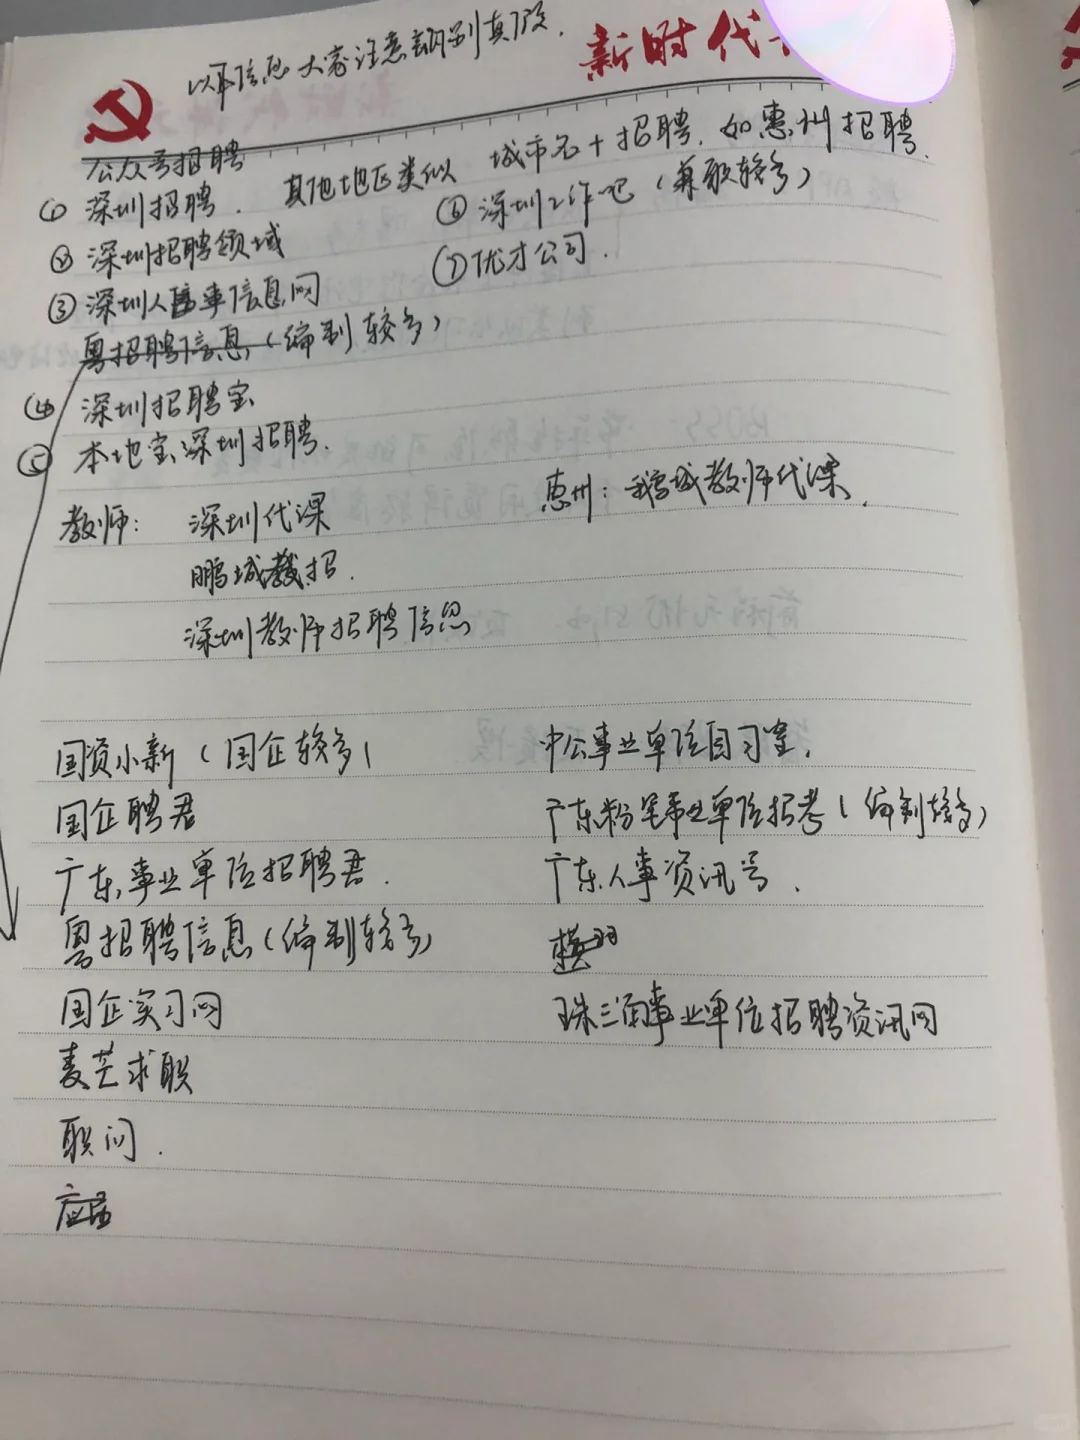 以下信息大家注意辨别真假.
新时代
公众号招聘
① 深圳招聘. 其他地区类似 城市名+招聘. 如惠州招聘.
② 深圳招聘领域
③ 深圳人事信息网
粤招聘信息(编制较多)
④ 深圳招聘宝
⑤ 本地宝深圳招聘.
⑥ 深圳工作吧(兼职较多)
⑦ 优才公司.
教师: 深圳代课
鹏城教招.
深圳教师招聘信息
惠州: 鹅城教师代课.
国资小新(国企较多)
国企聘君
广东事业单位招聘君.
粤招聘信息(编制较多)
国企实习网
麦芒求职
职问.
应届
中公事业单位自习室.
广东粉笔事业单位招考(编制较多)
广东人事资讯号.
珠三角事业单位招聘资讯网